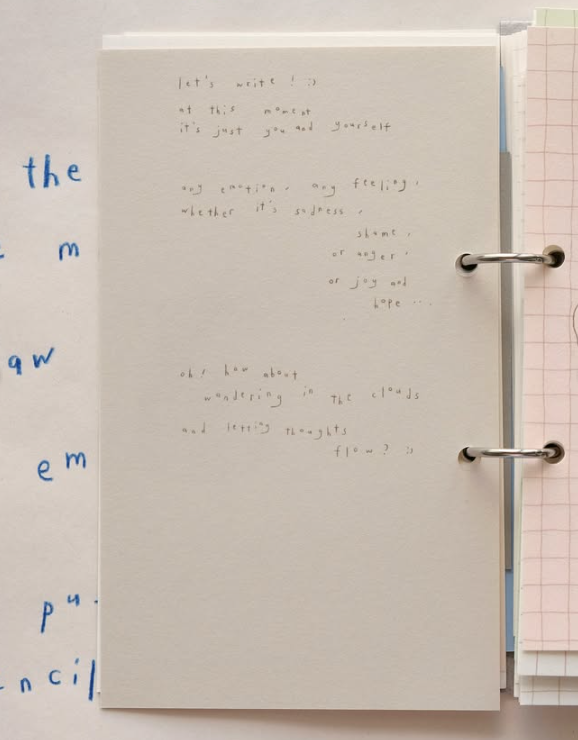 the
m
aw
em
pu
ncil
let's write ! :)
at this moment
it's just you and yourself
any emotion, any feeling,
whether it's sadness,
shame,
or anger,
or joy and
hope ...
oh! how about
wondering in the clouds
and letting thoughts
flow? :)